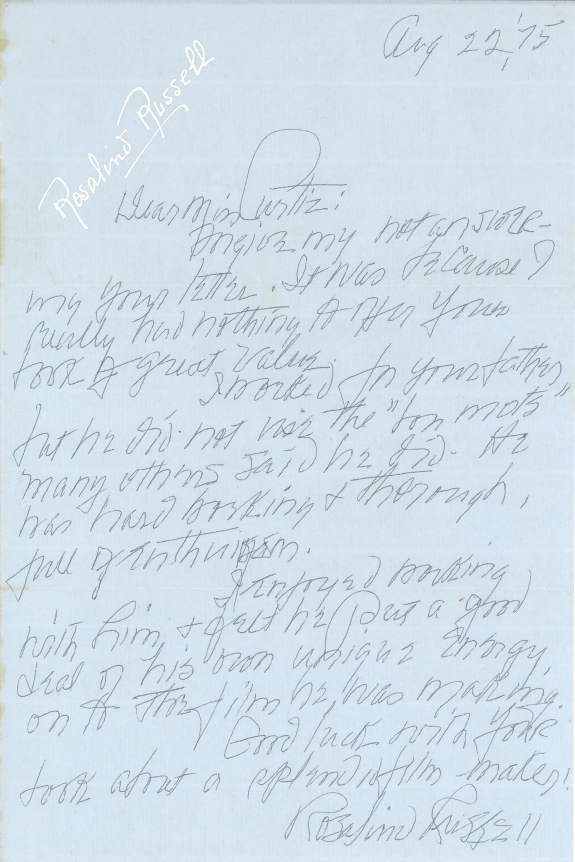 Aug 22, '75
Rosalind Russell
Dear Miss Curtiz:
Forgive my not answer-
ing your letter. It was because I
really had nothing to offer your
book of great value.
I worked for your father,
but he did not use the "bon mots"
many others said he did. He
was hard working & thorough,
full of enthusiasm.
I enjoyed working
with him, & felt he put a good
deal of his own unique energy,
on to the film he was making.
Good luck with your
book about a splendid film-maker!
Rosalind Russell